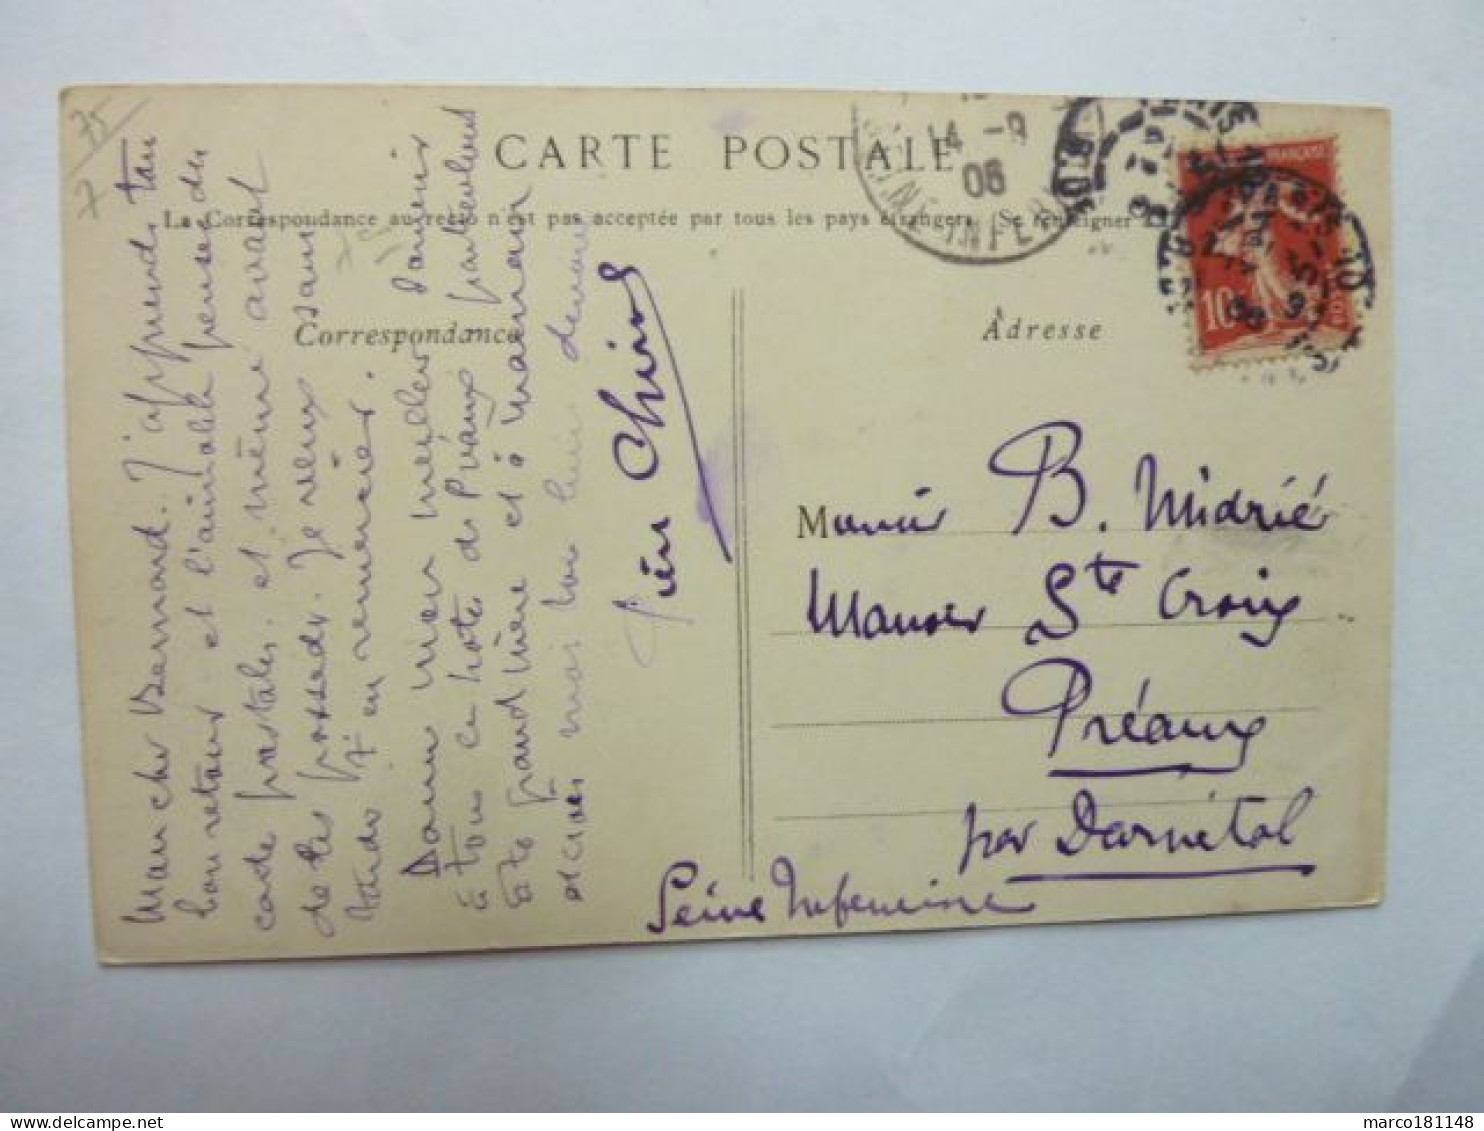 75
7
CARTE POSTALE
La Correspondance au recto n'est pas acceptée par tous les pays étrangers (Se renseigner
Correspondance
Adresse
14 -9
08
10
Mon cher Bernard. J'apprends ton
bon retour et l'aimable pensée des
carte postales. et même avant
de les posséder. Je veux sans
tarder t'en remercier.
Donne mon meilleur souvenir
à tous ce hotes de Préaux particulièrement
à ta grand'mère et à maman
et crois moi bien
Chini
Monsieur B. Midrié
Manoir Ste Croix
Préaux
par Darnétal
Seine Inférieure
marco181148